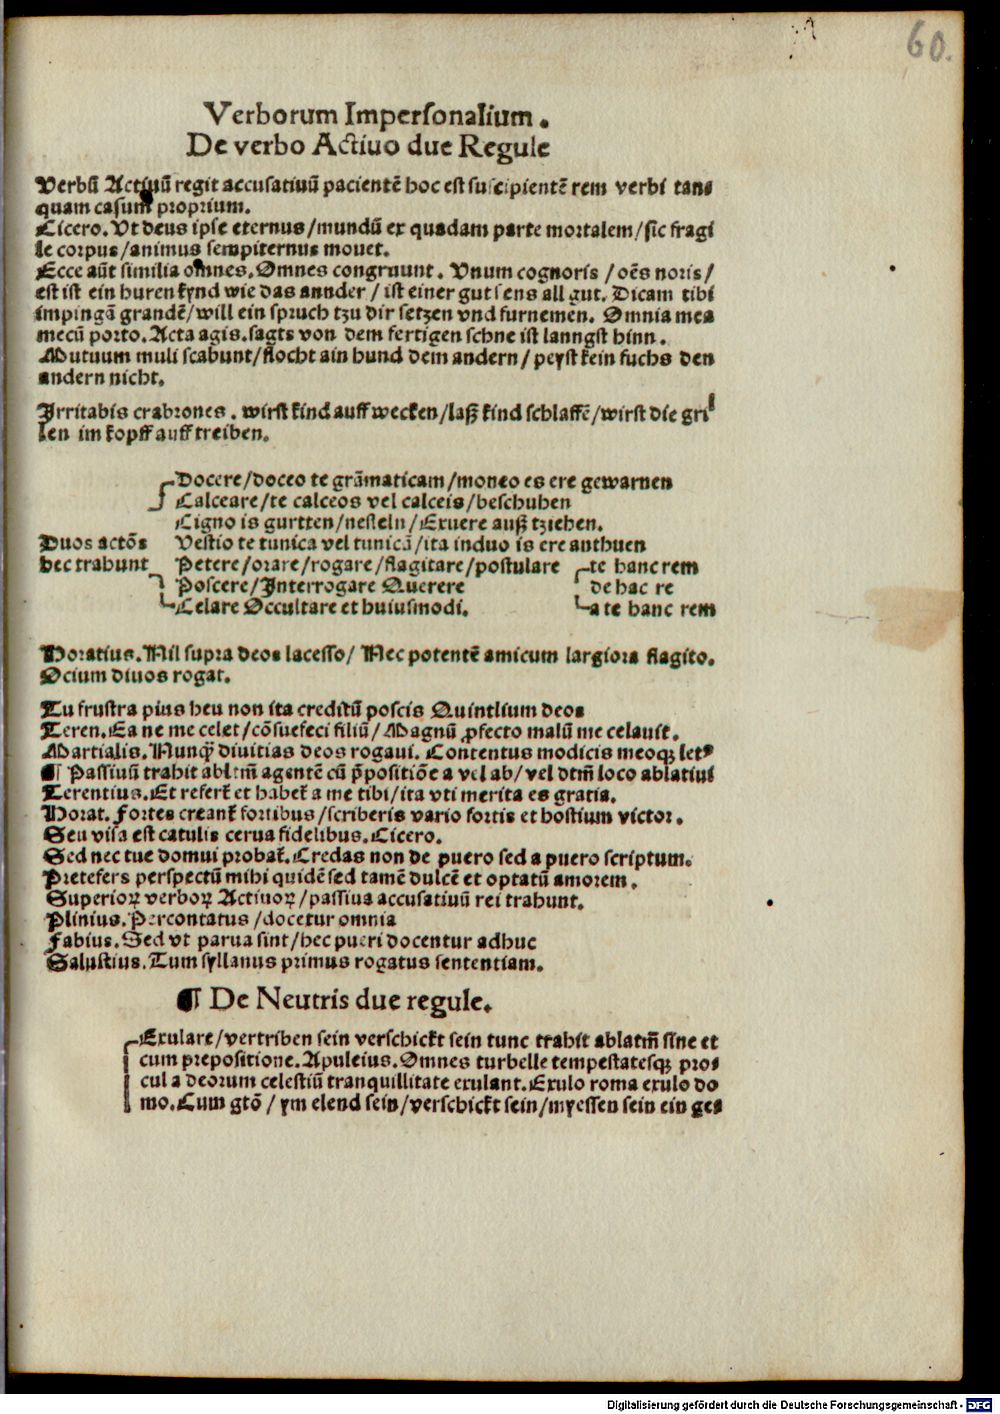 60.
Verborum Impersonalium.
De verbo Actiuo due Regule
Verbū Actiuū regit accusatiuū pacientē hoc est suscipientē rem verbi tan⸗
quam casum proprium.
Cicero. Vt deus ipse eternus/mundū ex quadam parte mortalem/sic fragi
le corpus/animus sempiternus mouet.
Ecce aūt similia omnes. Omnes congruunt. Vnum cognoris/oēs noris/
est ist ein huren kynd wie das annder/ist einer gut sens all gut. Dicam tibi
impingā grandē/will ein spruch tzu dir setzen vnd furnemen. Omnia mea
mecū porto. Acta agis. sagts von dem fertigen schne ist lanngst hinn.
Mutuum muli scabunt/flocht ain hund dem andern/peyst kein fuchs den
andern nicht.
Irritabis crabrones. wirst kind auff wecken/laß kind schlaffē/wirst die gri
len im kopff auff treiben.
Docere/doceo te grāmaticam/moneo es ere gewarnen
Calceare/te calceos vel calceis/beschuhen
Cigno is gurtten/nesteln/Exuere auß tziehen.
Duos actōs Vestio te tunica vel tunicā/ita induo is ere anthuen
hec trahunt Petere/orare/rogare/flagitare/postulare te hanc rem
Poscere/Interrogare Querere de hac re
Celare Occultare et huiusmodi. a te hanc rem
Horatius. Nil supra deos lacesso/Nec potentē amicum largiora flagito.
Ocium diuos rogat.
Tu frustra pius heu non ita creditū poscis Quintlium deos
Teren. Ea ne me celet/cōsuefeci filiū/Magnū ꝓfecto malū me celauit.
Martialis. Nunqꝫ diuitias deos rogaui. Contentus modicis meoqꝫ letꝰ
¶ Passiuū trahit abltm̄ agentē cū p̄positiōe a vel ab/vel dtm̄ loco ablatiui
Terentius. Et refert̄ et habet̄ a me tibi/ita vti merita es gratia.
Horat. Fortes creant̄ fortibus/scriberis vario fortis et hostium victor.
Seu visa est catulis cerua fidelibus. Cicero.
Sed nec tue domui probat̄. Credas non de puero sed a puero scriptum.
Pretefers perspectū mihi quidē sed tamē dulcē et optatū amorem.
Superioꝝ verboꝝ Actiuoꝝ/passiua accusatiuū rei trahunt.
Plinius. Percontatus/docetur omnia
Fabius. Sed vt parua sint/hec pueri docentur adhuc
Salustius. Tum syllanus primus rogatus sententiam.
¶ De Neutris due regule.
Exulare/vertriben sein verschickt sein tunc trahit ablatm̄ sine et
cum prepositione. Apuleius. Omnes turbelle tempestatesqꝫ pro⸗
cul a deorum celestiū tranquillitate exulant. Exulo roma exulo do
mo. Cum gtō/ym elend sein/verschickt sein/myessen sein ein ge⸗
Digitalisierung gefördert durch die Deutsche Forschungsgemeinschaft - DFG